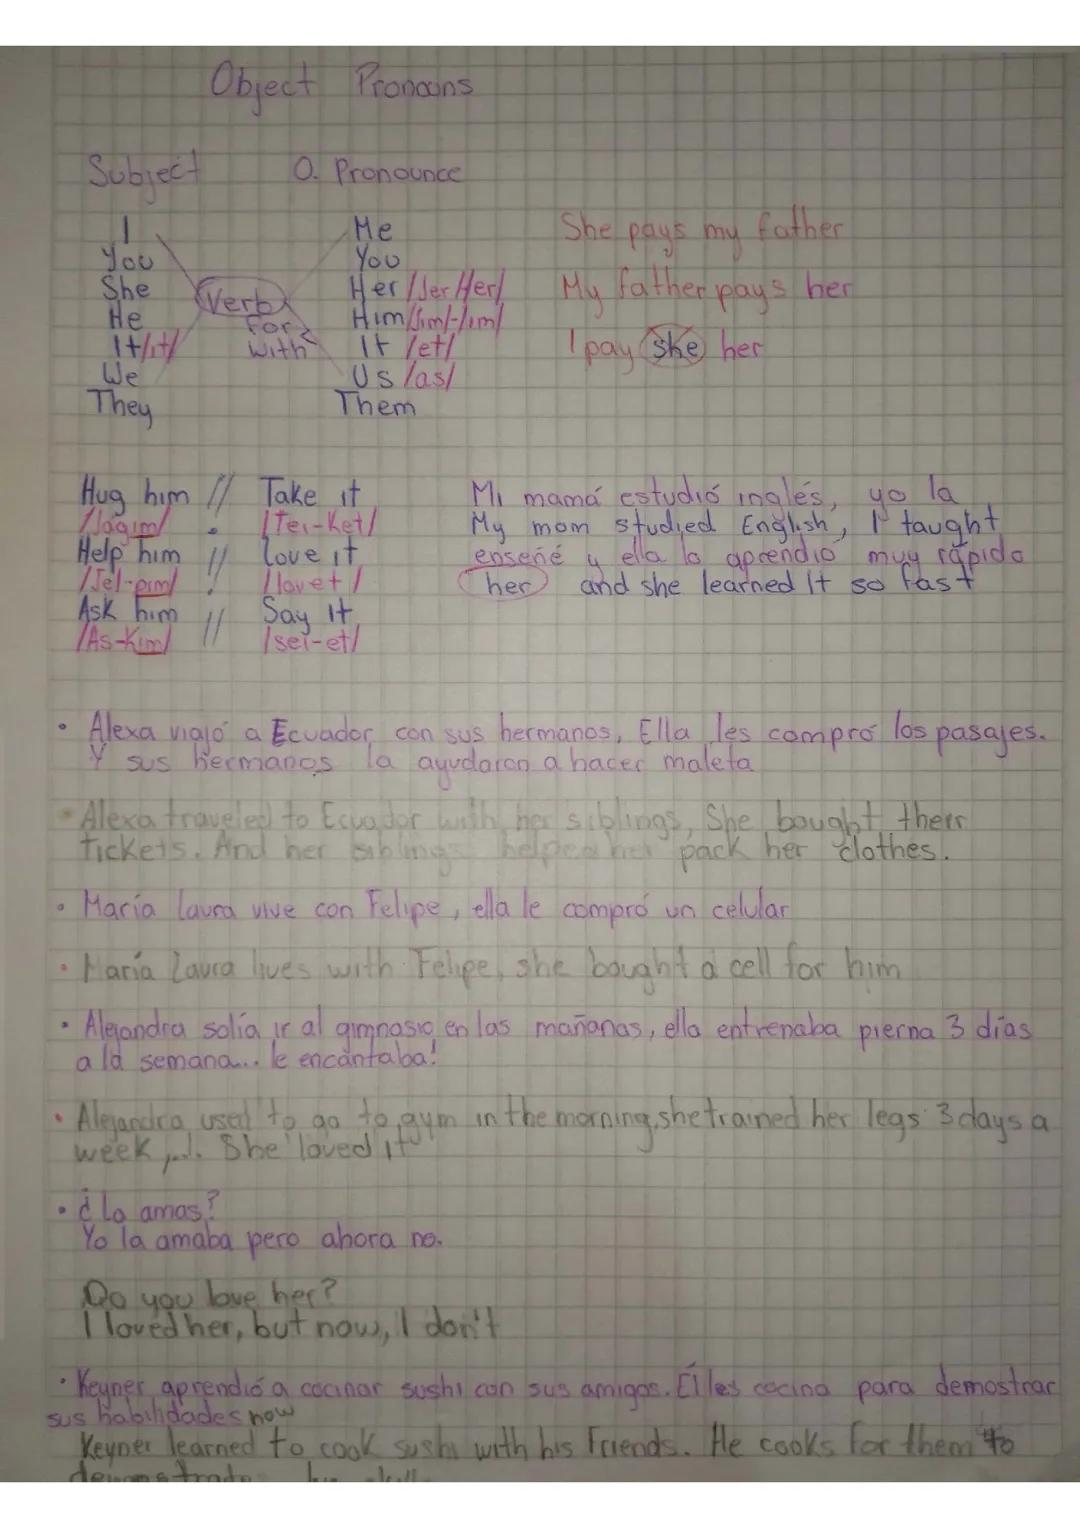 Object Pronouns
Subject O. Pronounce
I Me She pays my father
You You
She Verb Her /Jer Her/ My father pays her
He For Him/Jim/-/im/
It/it/ With It /et/ I pay she her
We Us /as/
They Them
Hug him // Take it Mi mamá estudió inglés, yo la
/Jagim/ /Tei-Ket/ My mom studied English, I taught
Help him // Love it enseñé y ella lo aprendió muy rápido
/Jel-pim/ /lovet/ her and she learned It so fast
Ask him // Say It
/As-Kim/ /sei-et/
• Alexa viajó a Ecuador con sus hermanos, Ella les compró los pasajes.
Y sus hermanos la ayudaron a hacer maleta
• Alexa traveled to Ecuador with her siblings, She bought their
tickets. And her siblings helped her pack her clothes.
• María Laura vive con Felipe, ella le compró un celular
• María Laura lives with Felipe, she bought a cell for him
• Alejandra solía ir al gimnasio en las mañanas, ella entrenaba pierna 3 días
a la semana... le encantaba!
• Alejandra used to go to gym in the morning, she trained her legs 3 days a
week,... She loved it
• ¿La amas?
Yo la amaba pero ahora no.
Do you love her?
I loved her, but now, I don't
• Keyner aprendió a cocinar sushi con sus amigos. Él les cocina para demostrar
sus habilidades now
Keyner learned to cook sushi with his Friends. He cooks for them to
demonstrate